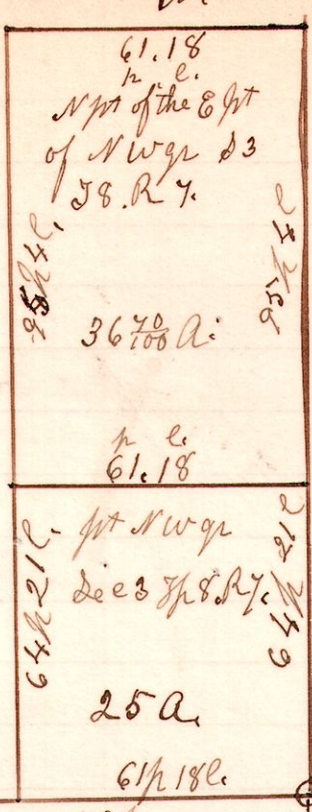 61.18
p. l.
N pt of the E pt
of N w qr S 3
T 8. R 7.
95 p 4 l.
36 70/100 A.
p l.
61.18
pt N w qr
Sec 3 Tp 8. R 7.
64 p 21 l.
64 p 21 l
25 A.
61 p 18 l.